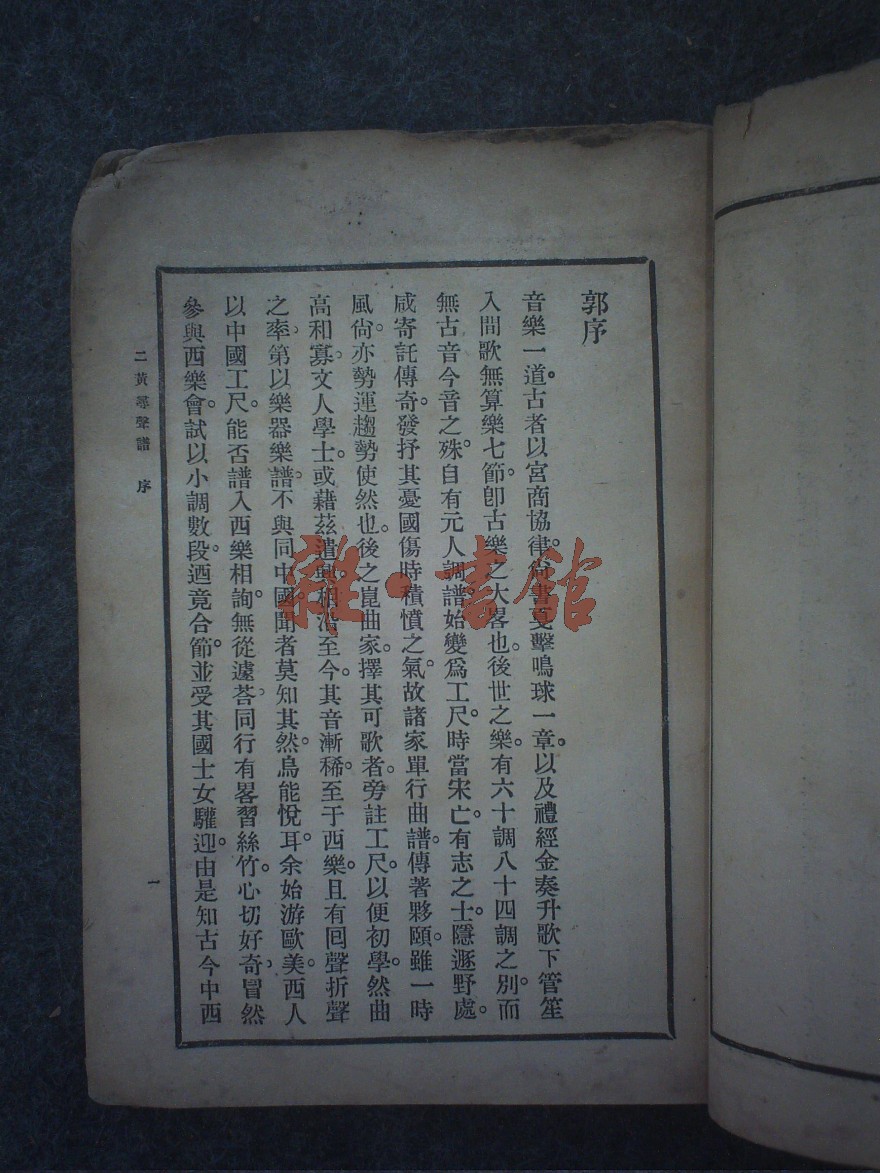 郭序
音樂一道。古者以宮商協律。尚書戛擊鳴球一章。以及禮經金奏升歌下管笙
入間歌無算樂七節。卽古樂之大畧也。後世之樂。有六十調八十四調之別。而
無古音今音之殊。自有元人調譜。始變爲工尺。時當宋亡。有志之士。隱遯野處。
咸寄託傳奇。發抒其憂國傷時積憤之氣。故諸家單行曲譜。傳著夥頤。雖一時
風尙。亦勢運趨勢使然也。後之崑曲家。擇其可歌者。旁註工尺。以便初學。然曲
高和寡。文人學士。或藉茲遣興。相沿至今。其音漸稀。至于西樂。且有回聲折聲
之率。第以樂器樂譜。不與同中國。聞者莫知其然。烏能悅耳。余始游歐美。西人
以中國工尺。能否譜入西樂相詢。無從遽荅。同行有畧習絲竹。心切好奇。冒然
參與西樂會。試以小調數段。迺竟合節。並受其國士女驩迎。由是知古今中西
二黃尋聲譜 序
一
雜·書館